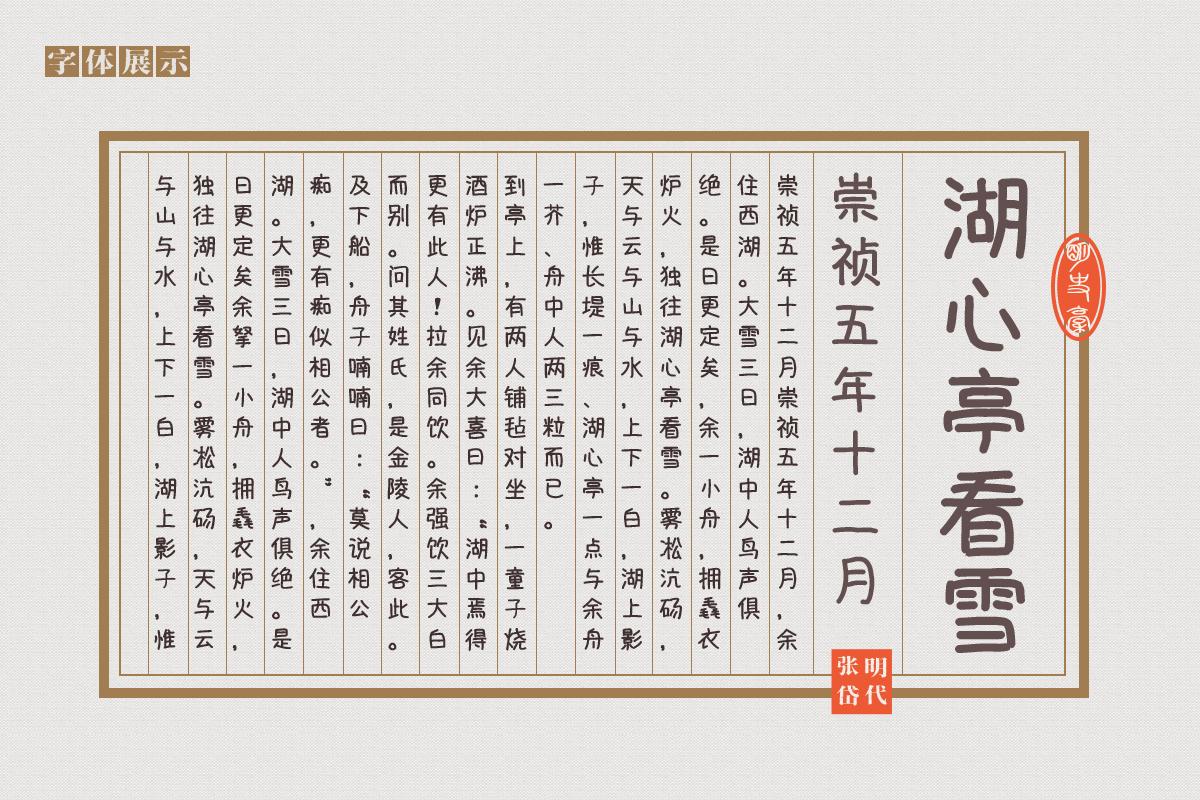 字体展示
湖心亭看雪
崇祯五年十二月
明代
张岱
崇祯五年十二月崇祯五年十二月，余
住西湖。大雪三日，湖中人鸟声俱
绝。是日更定矣，余一小舟，拥毳衣
炉火，独往湖心亭看雪。雾凇沆砀，
天与云与山与水，上下一白，湖上影
子，惟长堤一痕、湖心亭一点与余舟
一芥、舟中人两三粒而已。
到亭上，有两人铺毡对坐，一童子烧
酒炉正沸。见余大喜曰：“湖中焉得
更有此人！拉余同饮。余强饮三大白
而别。问其姓氏，是金陵人，客此。
及下船，舟子喃喃曰：“莫说相公
痴，更有痴似相公者。”，余住西
湖。大雪三日，湖中人鸟声俱绝。是
日更定矣余拏一小舟，拥毳衣炉火，
独往湖心亭看雪。雾凇沆砀，天与云
与山与水，上下一白，湖上影子，惟